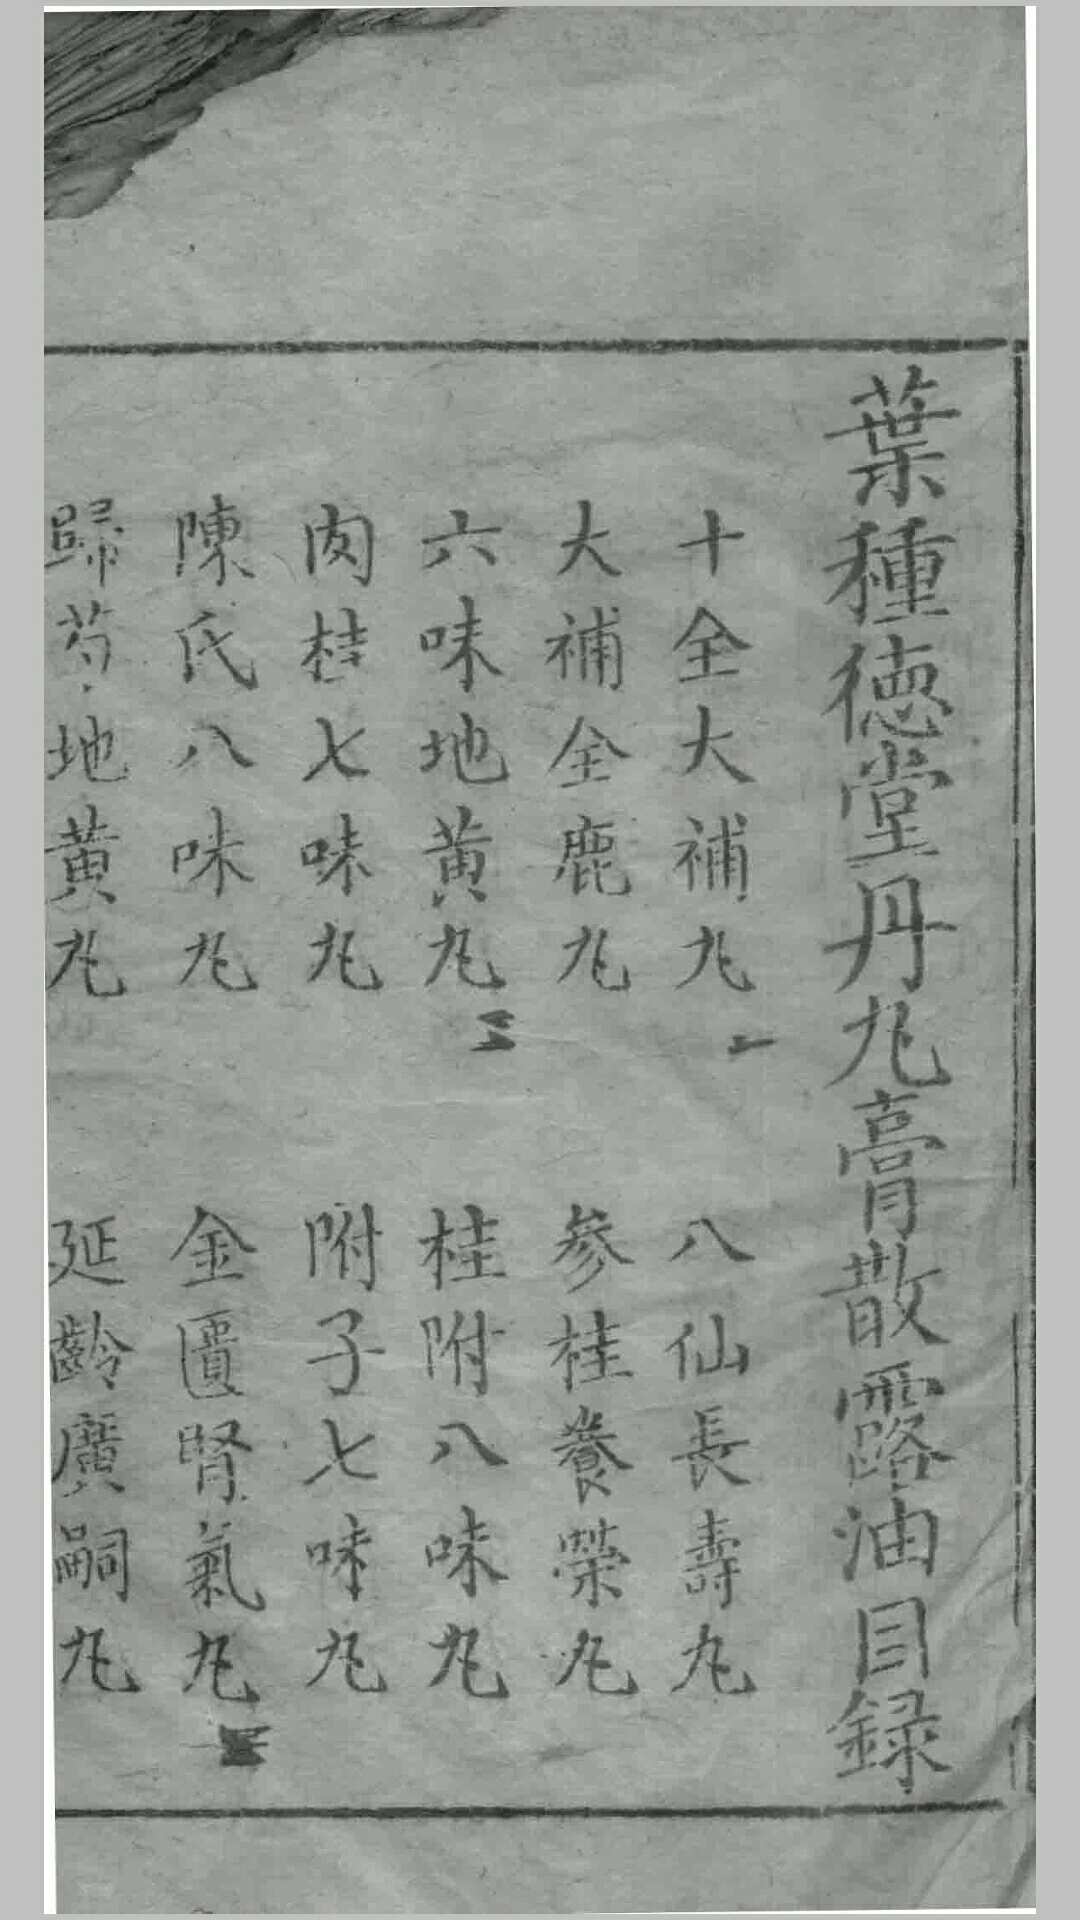 葉種德堂丹丸膏散露油目録
十全大補丸 一 八仙長壽丸
大補全鹿丸 参桂養榮丸
六味地黄丸 三 桂附八味丸
肉桂七味丸 附子七味丸
陳氏八味丸 金匱腎氣丸
歸芍地黄丸 延齡廣嗣丸